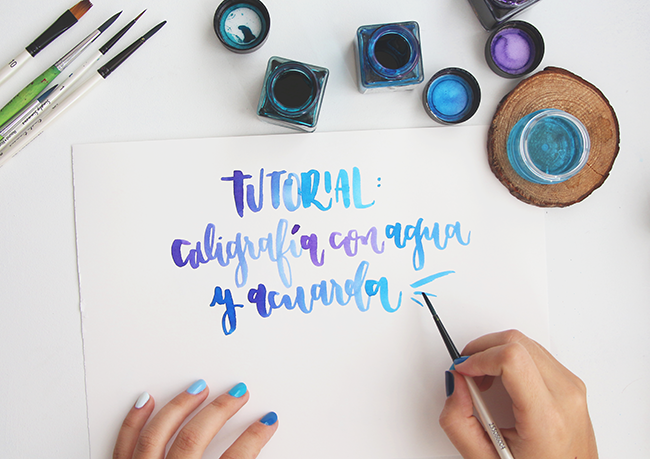 TUTORIAL:
caligrafía con agua
y acuarela